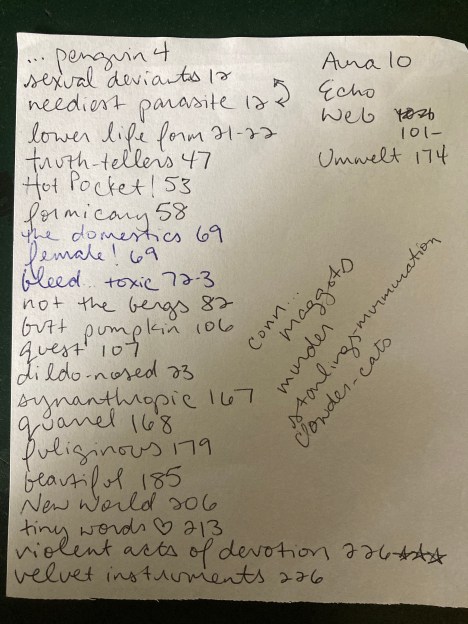 ... penguin 4
sexual deviants 12
neediest parasite 12
lower life form 21-22
truth-tellers 47
Hot Pocket! 53
formicary 58
the domestics 69
female! 69
bleed... toxic 72-3
not the bergs 82
butt pumpkin 106
quest 107
dildo-nosed 23
synanthropic 167
quarrel 168
fuliginous 179
beautiful 185
New World 206
tiny words ♡ 213
violent acts of devotion 226 ☆☆☆
velvet instruments 226
Aura 10
Echo
Web
101-
Umwelt 174
conn...
maggots
murder
starlings-murmuration
Clowder-cats